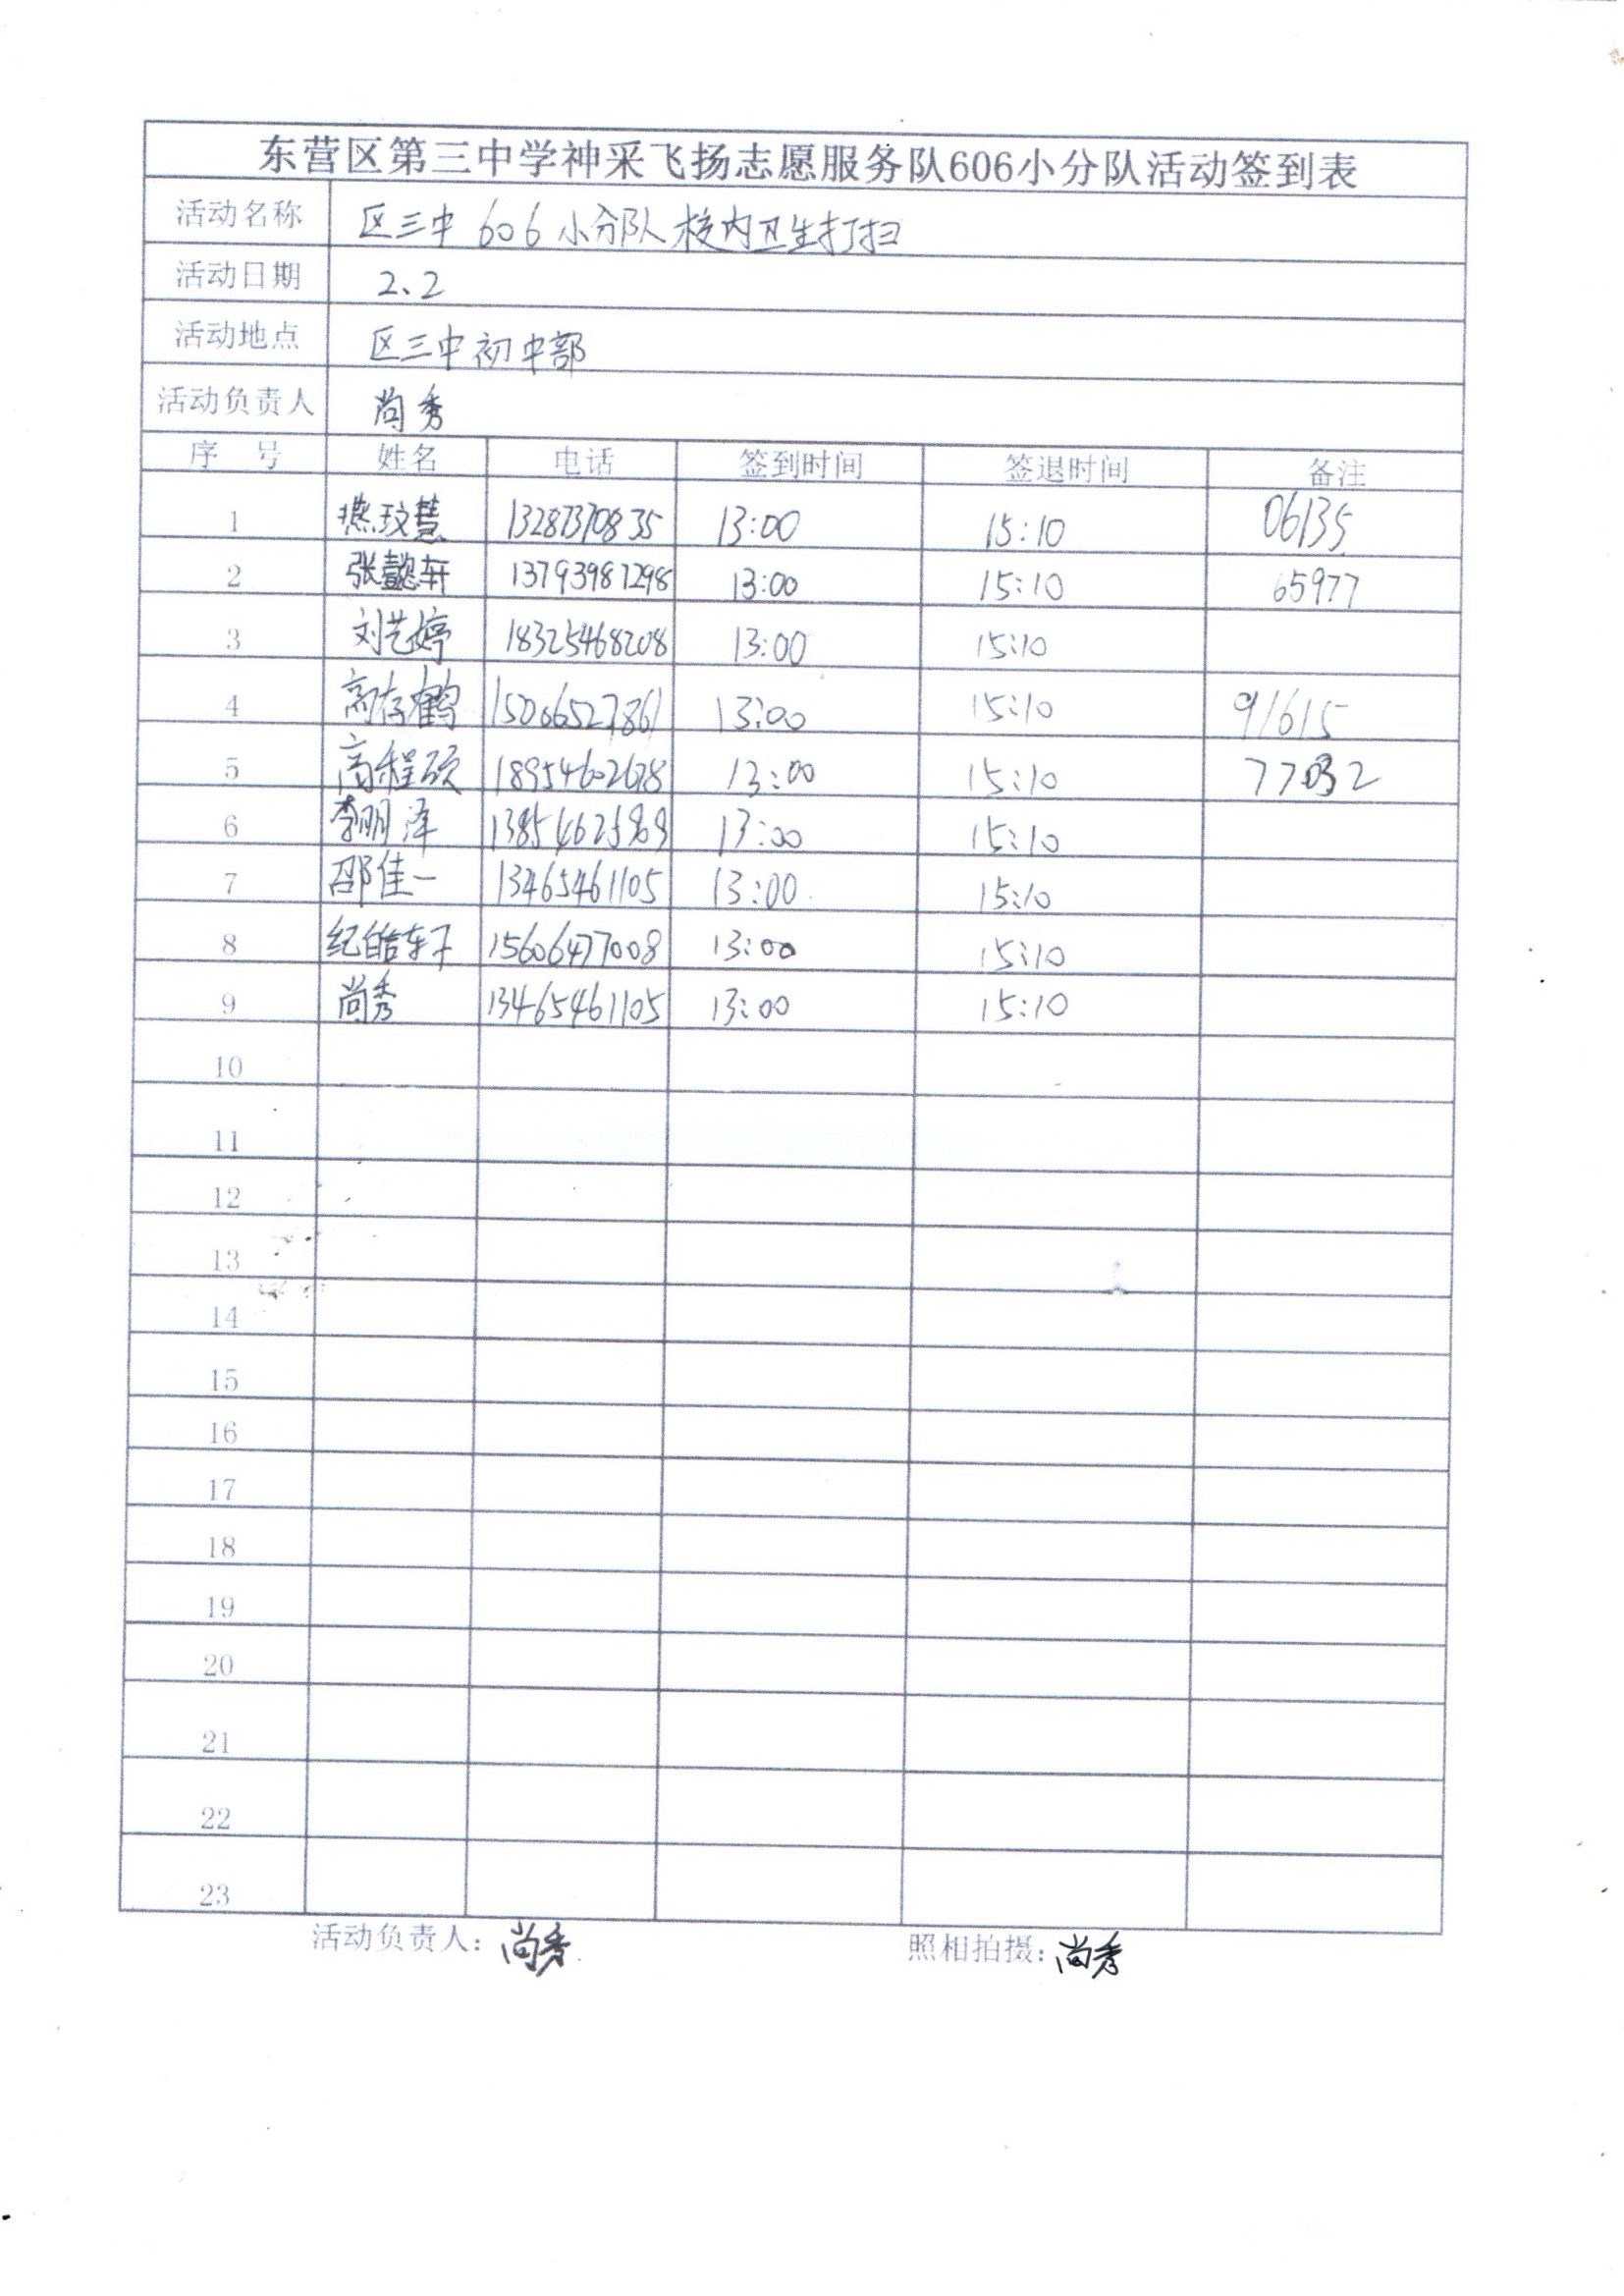 东营区第三中学神采飞扬志愿服务队606小分队活动签到表
活动名称 区三中606小分队校内卫生打扫
活动日期 2、2
活动地点 区三中初中部
活动负责人 尚秀
序 号 姓名 电话 签到时间 签退时间 备注
1 燕玟慧 13287370835 13:00 15:10 06135
2 张懿轩 13793987298 13:00 15:10 65977
3 刘艺婷 18325468208 13:00 15:10
4 高存鹤 152066527861 13:00 15:10 91615
5 高程硕 13:00 15:10
6 李明泽 13:00 15:10
7 邵佳一 13465461105 13:00 15:10
8 纪皓轩 15606477008 13:00 15:10
9 尚秀 13465461105 13:00 15:10
10
11
12
13
14
15
16
17
18
19
20
21
22
23
活动负责人：尚秀 照相拍摄：尚秀